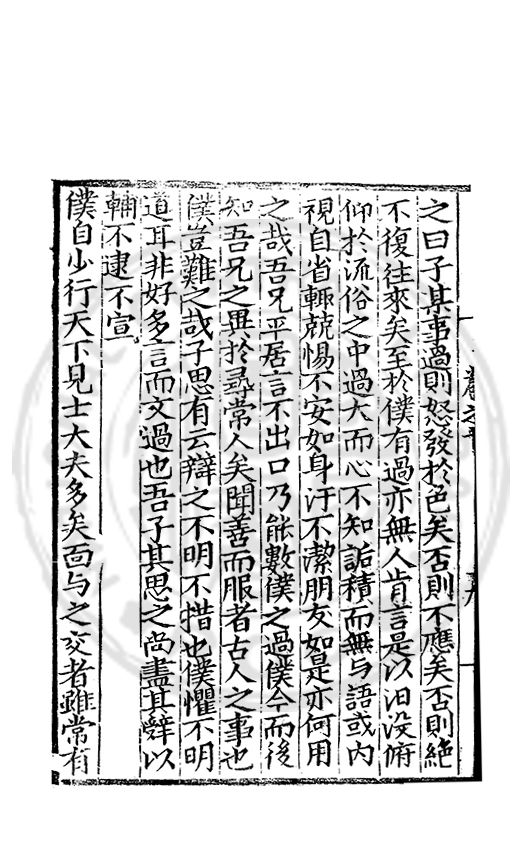 之曰子某事過則怒發於色矣否則不應矣否則絕
不復往來矣至於僕有過亦無人肯言是以汩没俯
仰於流俗之中過大而心不知詬積而無与語或内
視自省輙兢惕不安如身汙不潔朋友如是亦何用
之哉吾兄平居言不出口乃能數僕之過僕今而後
知吾兄之異於尋常人矣聞善而服者古人之事也
僕豈難之哉子思有云辯之不明不措也僕懼不明
道耳非好多言而文過也吾子其思之尚盡其辤以
輔不逮不宣
僕自少行天下見士大夫多矣面与之交者雖常有